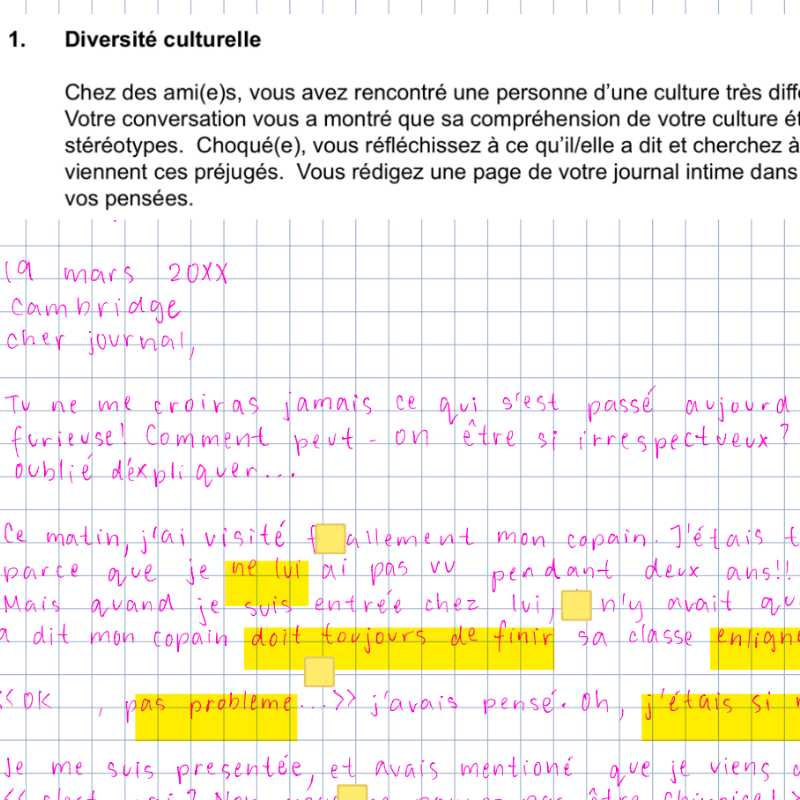 1. Diversité culturelle
Chez des ami(e)s, vous avez rencontré une personne d'une culture très
Votre conversation vous a montré que sa compréhension de votre culture
stéréotypes. Choqué(e), vous réfléchissez à ce qu'il/elle a dit et cherchez à
viennent ces préjugés. Vous rédigez une page de votre journal intime dans
vos pensées.
19 mars 20XX
Cambridge
cher journal,
Tu ne me croiras jamais ce qui s'est passé aujourd
furieuse! Comment peut-on être si irrespectueux?
oublié d'éxpliquer...
Ce matin, j'ai visité mon copain. J'étais
parce que je ne lui ai pas vu pendant deux ans!!
Mais quand je suis entrée chez lui, n'y avait
a dit mon copain doit toujours de finir sa classe enligne
<<OK, pas probleme...>> j'avais pensé. Oh, j'étais si
Je me suis presentée, et avais mentioné que je viens